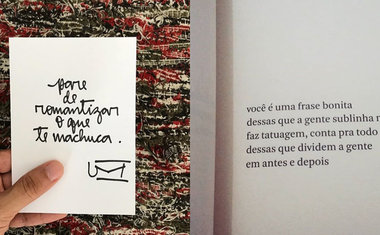 pare
de
romantizar
o que
te machuca.
você é uma frase bonita
dessas que a gente sublinha
faz tatuagem, conta pra todo
dessas que dividem a gente
em antes e depois